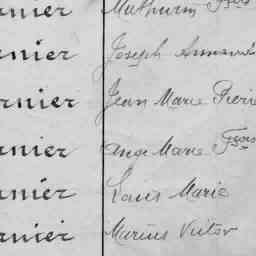 rnier Mathurin Fcois
rnier Joseph
rnier Jean Marie Pierre
rnier Ange Marie Fcois
rnier Louis Marie
rnier Marius Victor